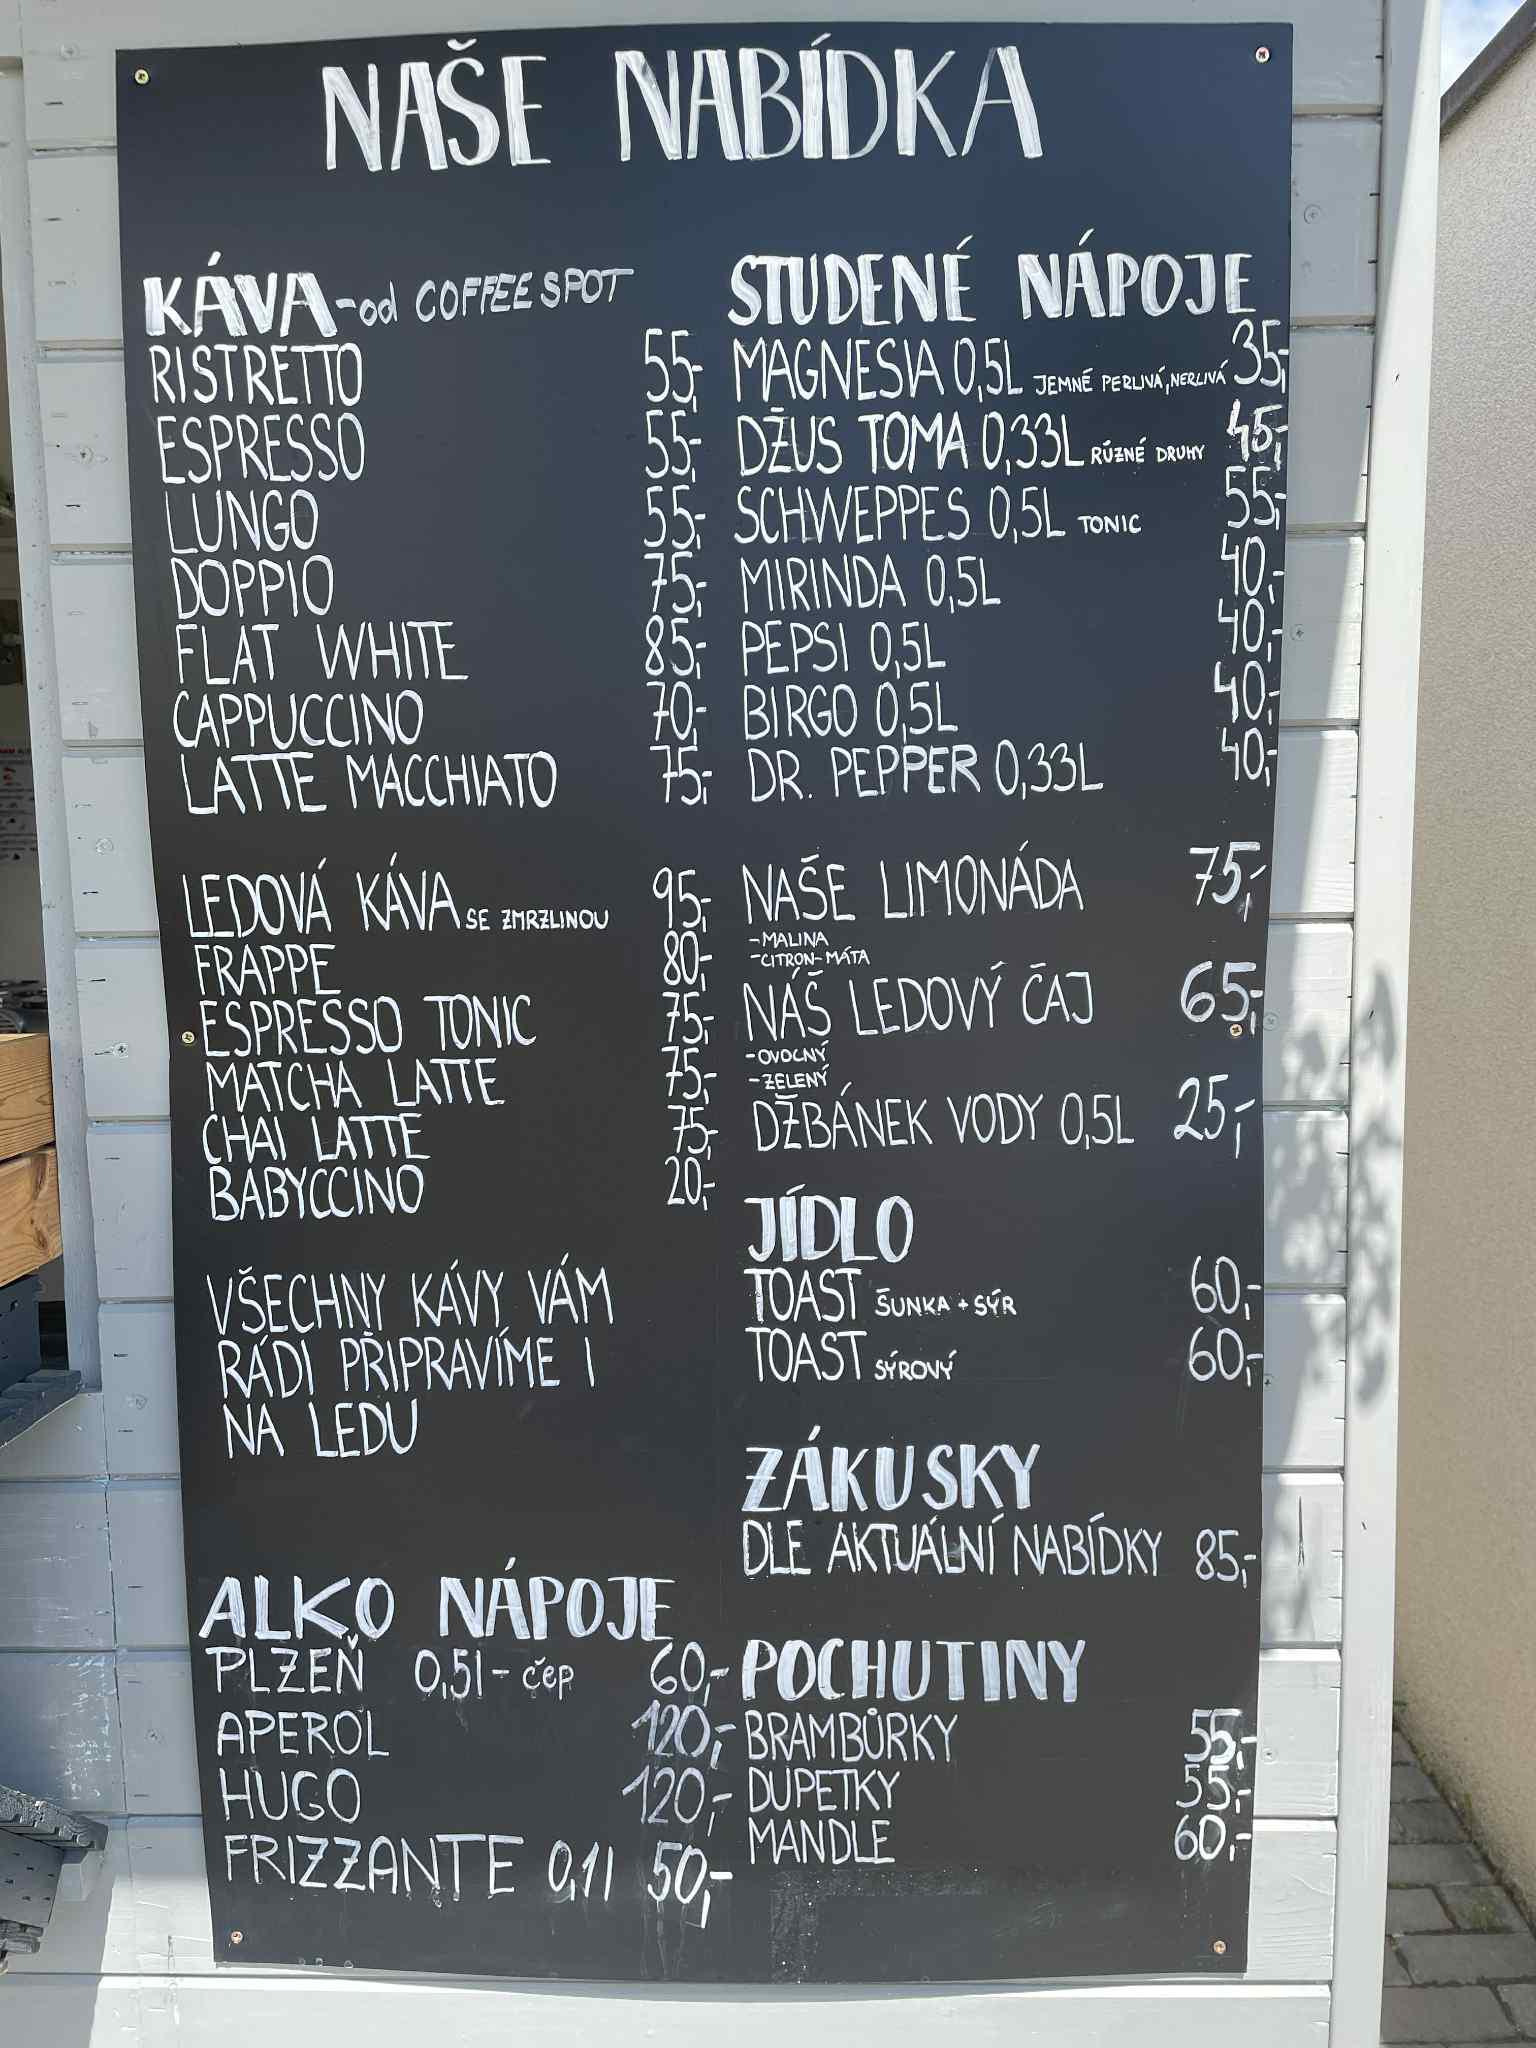 NAŠE NABÍDKA
KÁVA - od COFFEE SPOT
RISTRETTO 55,-
ESPRESSO 55,-
LUNGO 55,-
DOPPIO 75,-
FLAT WHITE 85,-
CAPPUCCINO 70,-
LATTE MACCHIATO 75,-
LEDOVÁ KÁVA SE ZMRZLINOU 95,-
FRAPPE 80,-
ESPRESSO TONIC 75,-
MATCHA LATTE 75,-
CHAI LATTE 75,-
BABYCCINO 20,-
VŠECHNY KÁVY VÁM
RÁDI PŘIPRAVÍME I
NA LEDU
ALKO NÁPOJE
PLZEŇ 0,5l - čep 60,-
APEROL 120,-
HUGO 120,-
FRIZZANTE 0,1l 50,-
STUDENÉ NÁPOJE
MAGNESIA 0,5L JEMNĚ PERLIVÁ, NERLIVÁ 35,-
DŽUS TOMA 0,33L RŮZNÉ DRUHY 45,-
SCHWEPPES 0,5L TONIC 55,-
MIRINDA 0,5L 40,-
PEPSI 0,5L 40,-
BIRGO 0,5L 40,-
DR. PEPPER 0,33L 40,-
NAŠE LIMONÁDA 75,-
- MALINA
- CITRON-MÁTA
NÁŠ LEDOVÝ ČAJ 65,-
- OVOCNÝ
- ZELENÝ
DŽBÁNEK VODY 0,5L 25,-
JÍDLO
TOAST ŠUNKA + SÝR 60,-
TOAST SÝROVÝ 60,-
ZÁKUSKY
DLE AKTUÁLNÍ NABÍDKY 85,-
POCHUTINY
BRAMBŮRKY 55,-
DUPETKY 55,-
MANDLE 60,-